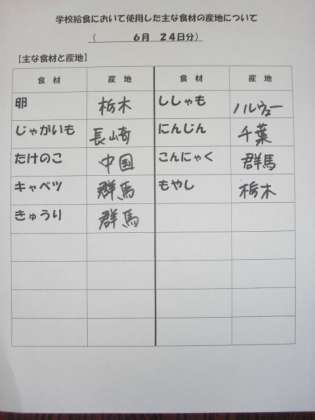 学校給食において使用した主な食材の産地について
( 6月 24日分)
【主な食材と産地】
食 材 産 地 食 材 産 地
卵 栃木 ししゃも ノルウェー
じゃがいも 長崎 にんじん 千葉
たけのこ 中国 こんにゃく 群馬
キャベツ 群馬 もやし 栃木
きゅうり 群馬